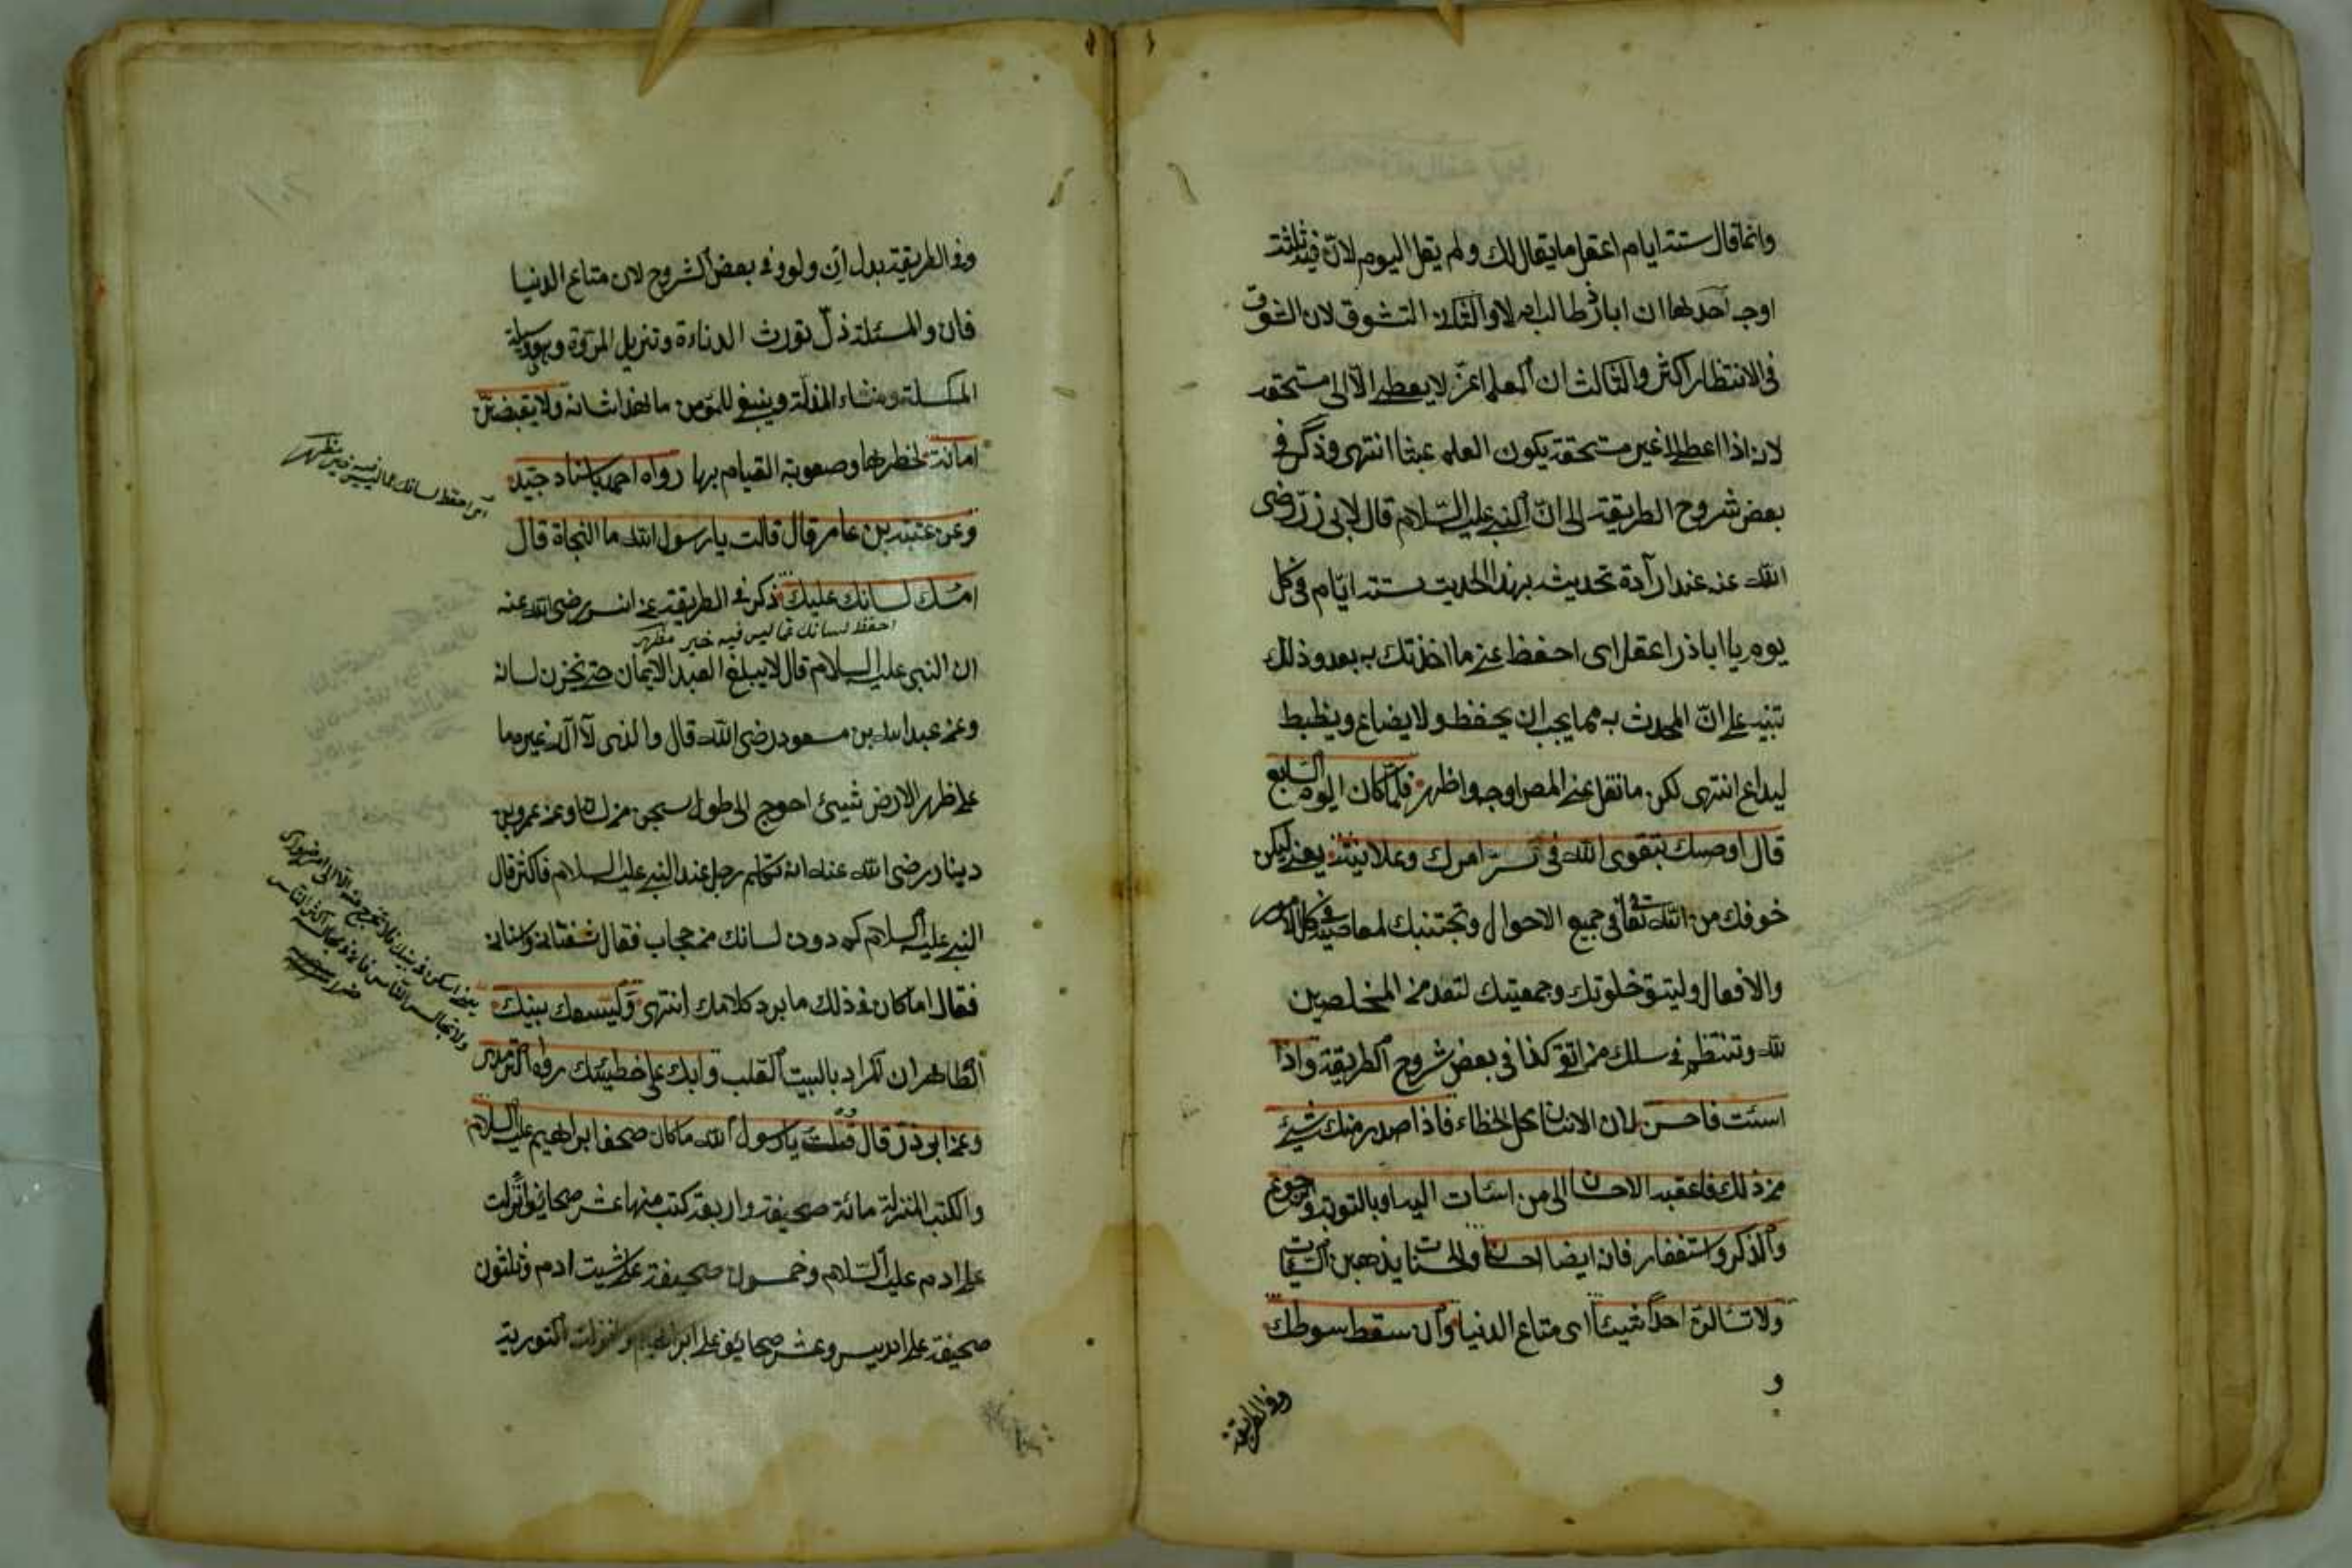 وانما قال ستة ايام اعقل ما يقال لك ولم يقل اليوم لان فيه ثلثة
اوجه احدها ان اباذر طالب اولا والثانى التشوق لان الشوق
فى الانتظار اكثر والثالث ان العلم اعز لا يعطى الا الى مستحقه
لانه اذا اعطى الى غير مستحقه يكون العلم عبثا انتهى وذكر فى
بعض شروح الطريقة الى ان النبى عليه السلام قال لابى ذر رضى
الله عنه عند ارادة تحديثه بهذا الحديث ستة ايام فى كل
يوم يا اباذر اعقل اى احفظ عنى ما اخذتك به بعد وذلك
تنبيه على ان المحدث به مما يجب ان يحفظ ولا يضاع ويظبط
ليداع انتهى لكن ما نقل عنه المص اوجه واظهر فلما كان اليوم السابع
قال اوصيك بتقوى الله فى سر امرك وعلانيته يعنى ليكن
خوفك من الله تعالى فى جميع الاحوال وتجتنبك لمعاصيه فى كل الامور
والافعال وليتق خلوتك وجمعيتك لتعد من المخلصين
لله وتنتظم فى سلك من اتقى كذا فى بعض شروح الطريقة واذا
اسئت فاحسن لان الانسان محل الخطاء فاذا صدر منك شيئ
من ذلك فاعقبه الاحسان الى من اسات اليه او بالتوبة ورجوع
والذكر واستغفار فانه ايضا احسان والحسنات يذهبن السيئات
ولا تسالن احدا شيئا اى متاع الدنيا وان سقط سوطك
و
وفى الطريقة
وفى الطريقة بدل ان ولو وفى بعض الشروح لان متاع الدنيا
فان والمسئلة ذل تورث الدناءة وتزيل المروة وهو وسيلة
المكسلة ومنشاء المذلة وينبغى للمؤمن ما هذا شانه ولا تقبضن
امانة لخطرها وصعوبة القيام بها رواه احمد باسناد جيد
اى احفظ لسانك عما ليس فيه خير مظهر
وعن عتبة بن عامر قال قالت يا رسول الله ما النجاة قال
امسك لسانك عليك ذكر فى الطريقة عن انس رضى الله عنه
احفظ لسانك عما ليس فيه خير مظهر
ان النبى عليه السلام قال لا يبلغ العبد الايمان حتى يخزن لسانه
وعن عبد الله بن مسعود رضى الله قال والذى لا اله غيره ما
على ظهر الارض شيئ احوج الى طول سجن من لسان وعن عمرو بن
دينار رضى الله عنه انه تكلم رجل عند النبى عليه السلام فاكثر قال
النبى عليه السلام كم دون لسانك من حجاب فقال شفتانى واسنانى
فقال اما كان فى ذلك ما يرد كلامك انتهى وليسعك بيتك
يعنى اسكن فى بيتك فلا تخرج منه الا الى امر ضرورى
ولا تجالس الناس فان فى مجالسة اكثر الناس
ضرر
الظاهر ان المراد بالبيت القلب وابك على خطيئتك رواه الترمذى
وعن ابو ذر قال قلت يا رسول الله ما كان صحف ابراهيم عليه السلام
والكتب المنزلة مائة صحيفة واربعة كتب منها عشر صحائف انزلت
على ادم عليه السلام وخمسون صحيفة على شيت ادم وثلثون
صحيفة على ادريس وعشر صحائف على ابراهيم وانزلت التورية